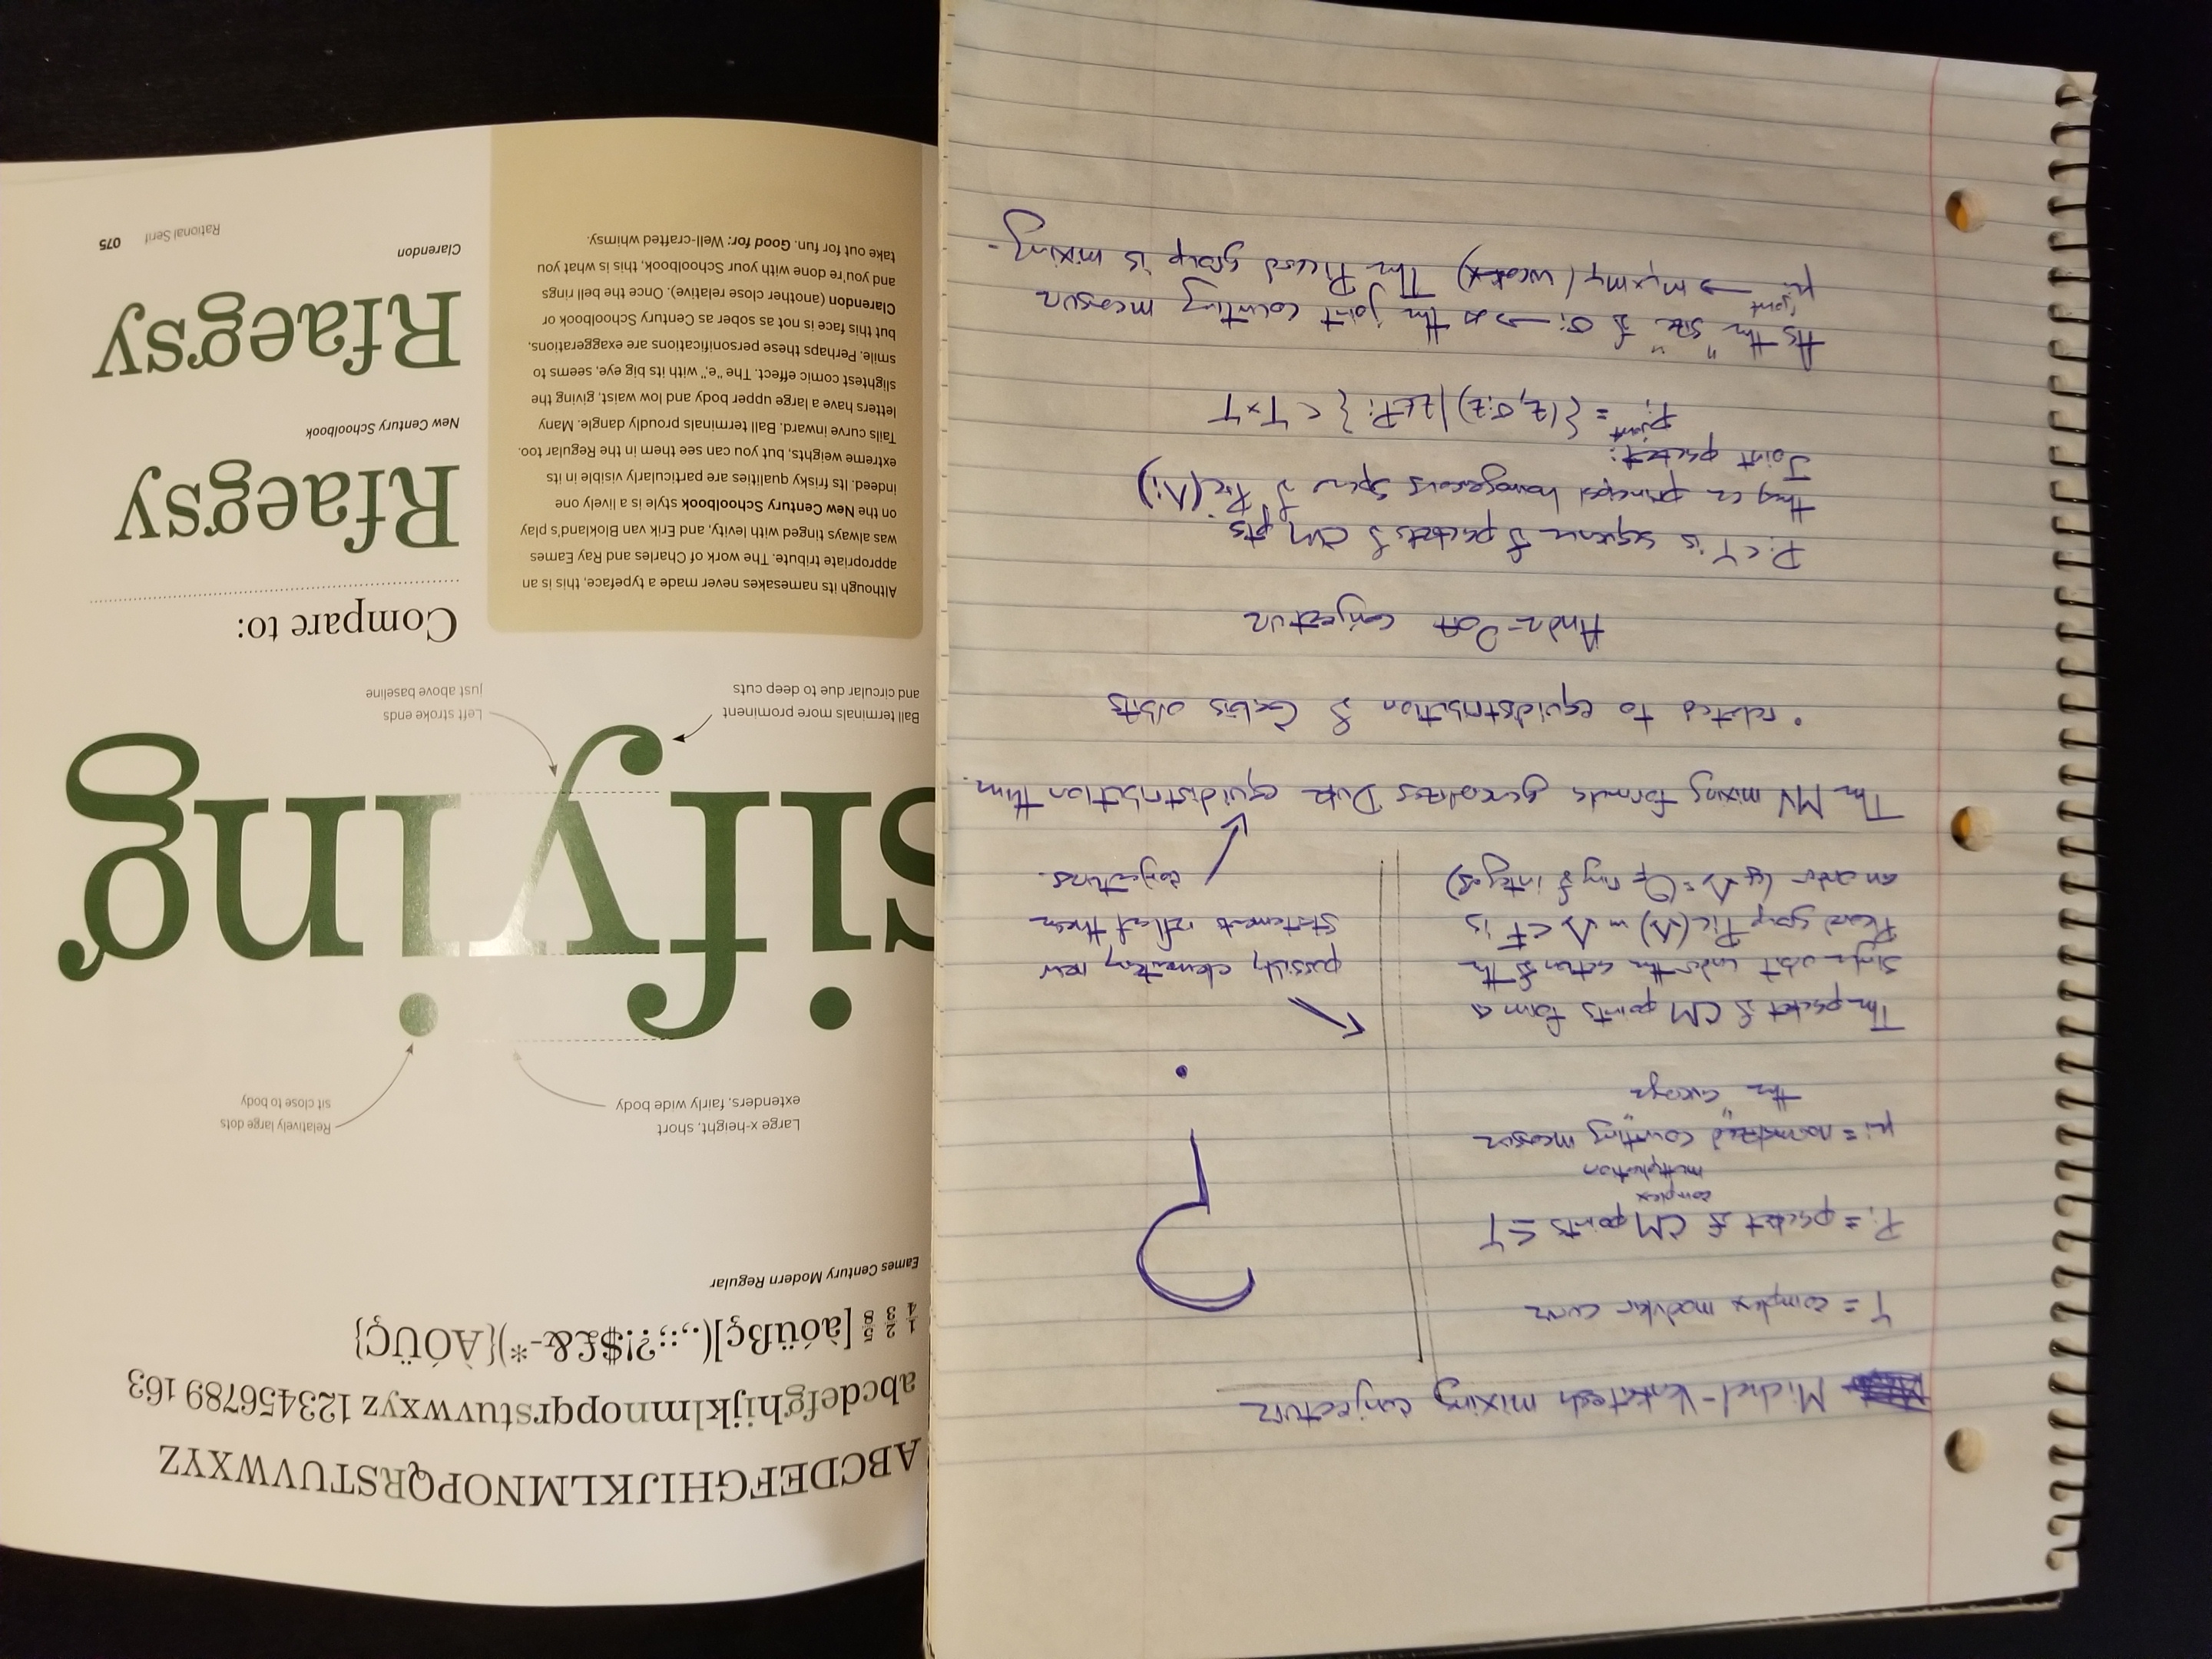 Michel-Venkatesh mixing conjecture
Y = complex modular curve
Pi = packet of CM points ⊆ Y
complex
multiplication
μi = normalized counting measure
the "average"
The packet of CM points form a
single orbit under the action of the
Picard group Pic(Λ) Λ < F is
an order (eg Λ = O_F ring of integers)
?
possibly elementary new
statements reflect these
conjectures.
The MV mixing formula generalizes Duke equidistribution thm.
• related to equidistribution of Galois orbits
Andre-Oort conjecture
Pi < Y is sequence of packets of CM pts.
they are principal homogenous space of Pic(Λi)
Joint packet:
Pi^joint = {(z, σi z) | z ∈ Pi } < Y × Y
As the "size" of σi → ∞ the joint counting measure
μi^joint → m_Y × m_Y (weak*) The Picard group is mixing.
ABCDEFGHIJKLMNOPQRSTUVWXYZ
abcdefghijklmnopqrstuvwxyz 123456789 163
1/4 2/3 5/8 [àóüßç](.,:;?!$£&-*){ÀÓÜÇ}
Eames Century Modern Regular
Large x-height, short
extenders, fairly wide body
Relatively large dots
sit close to body
sifying
Ball terminals more prominent
and circular due to deep cuts
Left stroke ends
just above baseline
Although its namesakes never made a typeface, this is an
appropriate tribute. The work of Charles and Ray Eames
was always tinged with levity, and Erik van Blokland's play
on the New Century Schoolbook style is a lively one
indeed. Its frisky qualities are particularly visible in its
extreme weights, but you can see them in the Regular too.
Tails curve inward. Ball terminals proudly dangle. Many
letters have a large upper body and low waist, giving the
slightest comic effect. The "e," with its big eye, seems to
smile. Perhaps these personifications are exaggerations,
but this face is not as sober as Century Schoolbook or
Clarendon (another close relative). Once the bell rings
and you're done with your Schoolbook, this is what you
take out for fun. Good for: Well-crafted whimsy.
Compare to:
Rfaegsy
New Century Schoolbook
Rfaegsy
Clarendon
Rational Serif 075